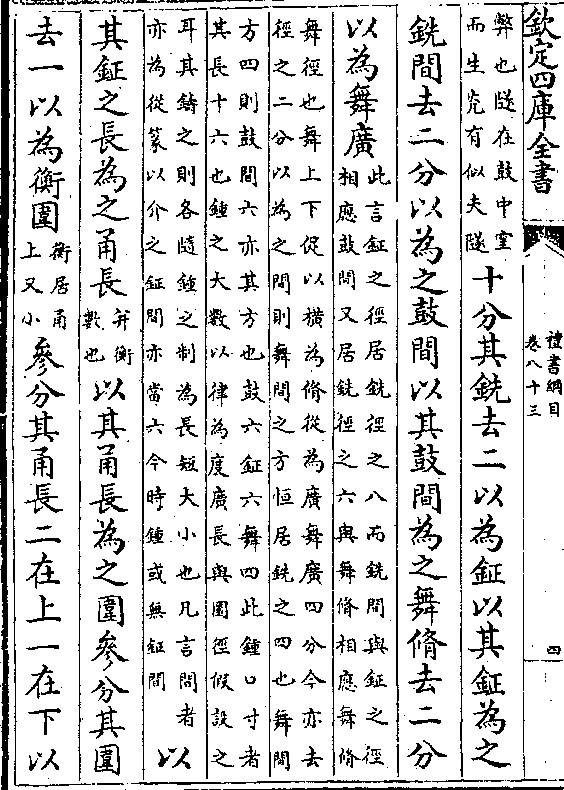 欽定四庫全書
禮書綱目
卷八十三
四
弊也隧在鼓中窐
而生光有似夫隧
十分其銑去二以為鉦以其鉦為之
銑間去二分以為之鼓間以其鼓間為之舞脩去二分
以為舞廣
此言鉦之徑居銑徑之八而銑間與鉦之徑
相應鼓間又居銑徑之六與舞脩相應舞脩
舞徑也舞上下促以橫為脩從為廣舞廣四分今亦去
徑之二分以為之間則舞間之方恒居銑之四也舞間
方四則鼓間六亦其方也鼓六鉦六舞四此鍾口寸者
其長十六也鍾之大數以律為度廣長與圜徑假設之
耳其鑄之則各隨鍾之制為長短大小也凡言間者
亦為從篆以介之鉦間亦當六今時鍾或無鉦間
以
其鉦之長為之甬長
并衡
數也
以其甬長為之圍參分其圍
去一以為衡圍
衡居甬
上又小
參分其甬長二在上一在下以